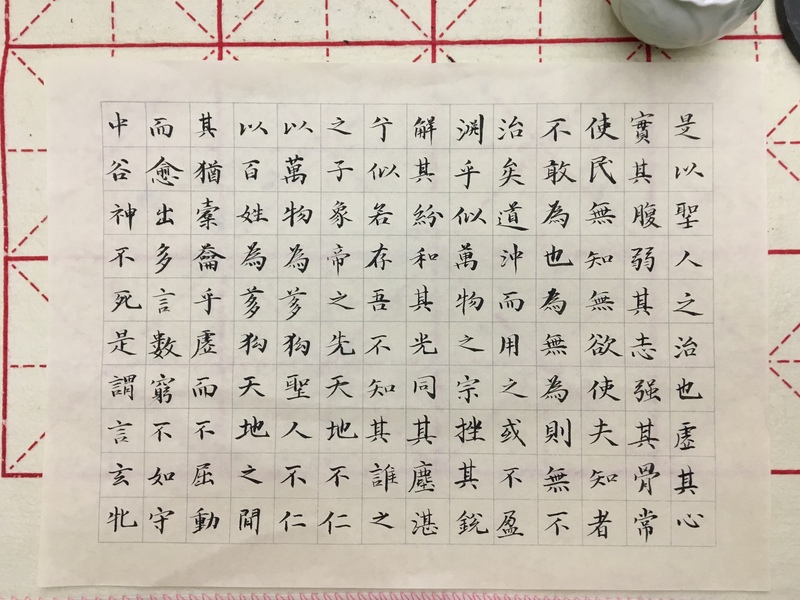 是以聖人之治也虛其心
實其腹弱其志强其骨常
使民無知無欲使夫知者
不敢為也為無為則無不
治矣道沖而用之或不盈
渕乎似萬物之宗挫其銳
解其紛和其光同其塵湛
兮似若存吾不知其誰之
之子象帝之先天地不仁
以萬物為芻狗聖人不仁
以百姓為芻狗天地之閒
其猶橐龠乎虛而不屈動
而愈出多言數窮不如守
中谷神不死是謂言玄牝